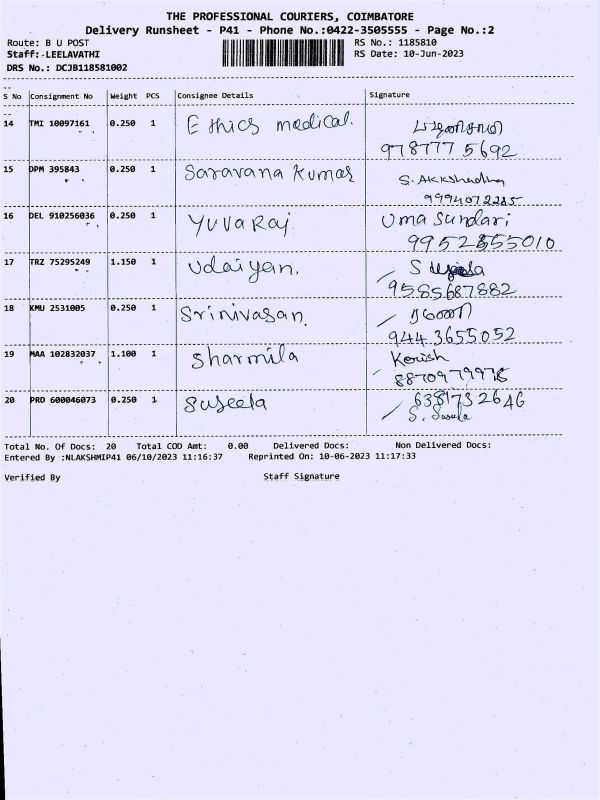 THE PROFESSIONAL COURIERS, COIMBATORE
Delivery Runsheet - P41 - Phone No.:0422-3505555 - Page No.:2
Route: B U POST RS No.: 1185810
Staff:-LEELAVATHI RS Date: 10-Jun-2023
DRS No.: DCJB118581002
S No Consignment No Weight PCS Consignee Details Signature
14 TMI 10097161 0.250 1 Ethics medical.
978777 5692
15 DPM 395843 0.250 1 Saravana Kumar S. Akkshadha
9994072285
16 DEL 910256036 0.250 1 Yuvaraj Uma Sundari
9952855010
17 TRZ 75295249 1.150 1 Udaiyan.
9585687882
18 KMU 2531005 0.250 1 Srinivasan.
944 3655052
19 MAA 102832037 1.100 1 Sharmila Kerish
20 PRD 600046073 0.250 1 Suseela 6381732646
S. Susula
Total No. Of Docs: 20 Total COD Amt: 0.00 Delivered Docs: Non Delivered Docs:
Entered By :NLAKSHMIP41 06/10/2023 11:16:37 Reprinted On: 10-06-2023 11:17:33
Verified By Staff Signature